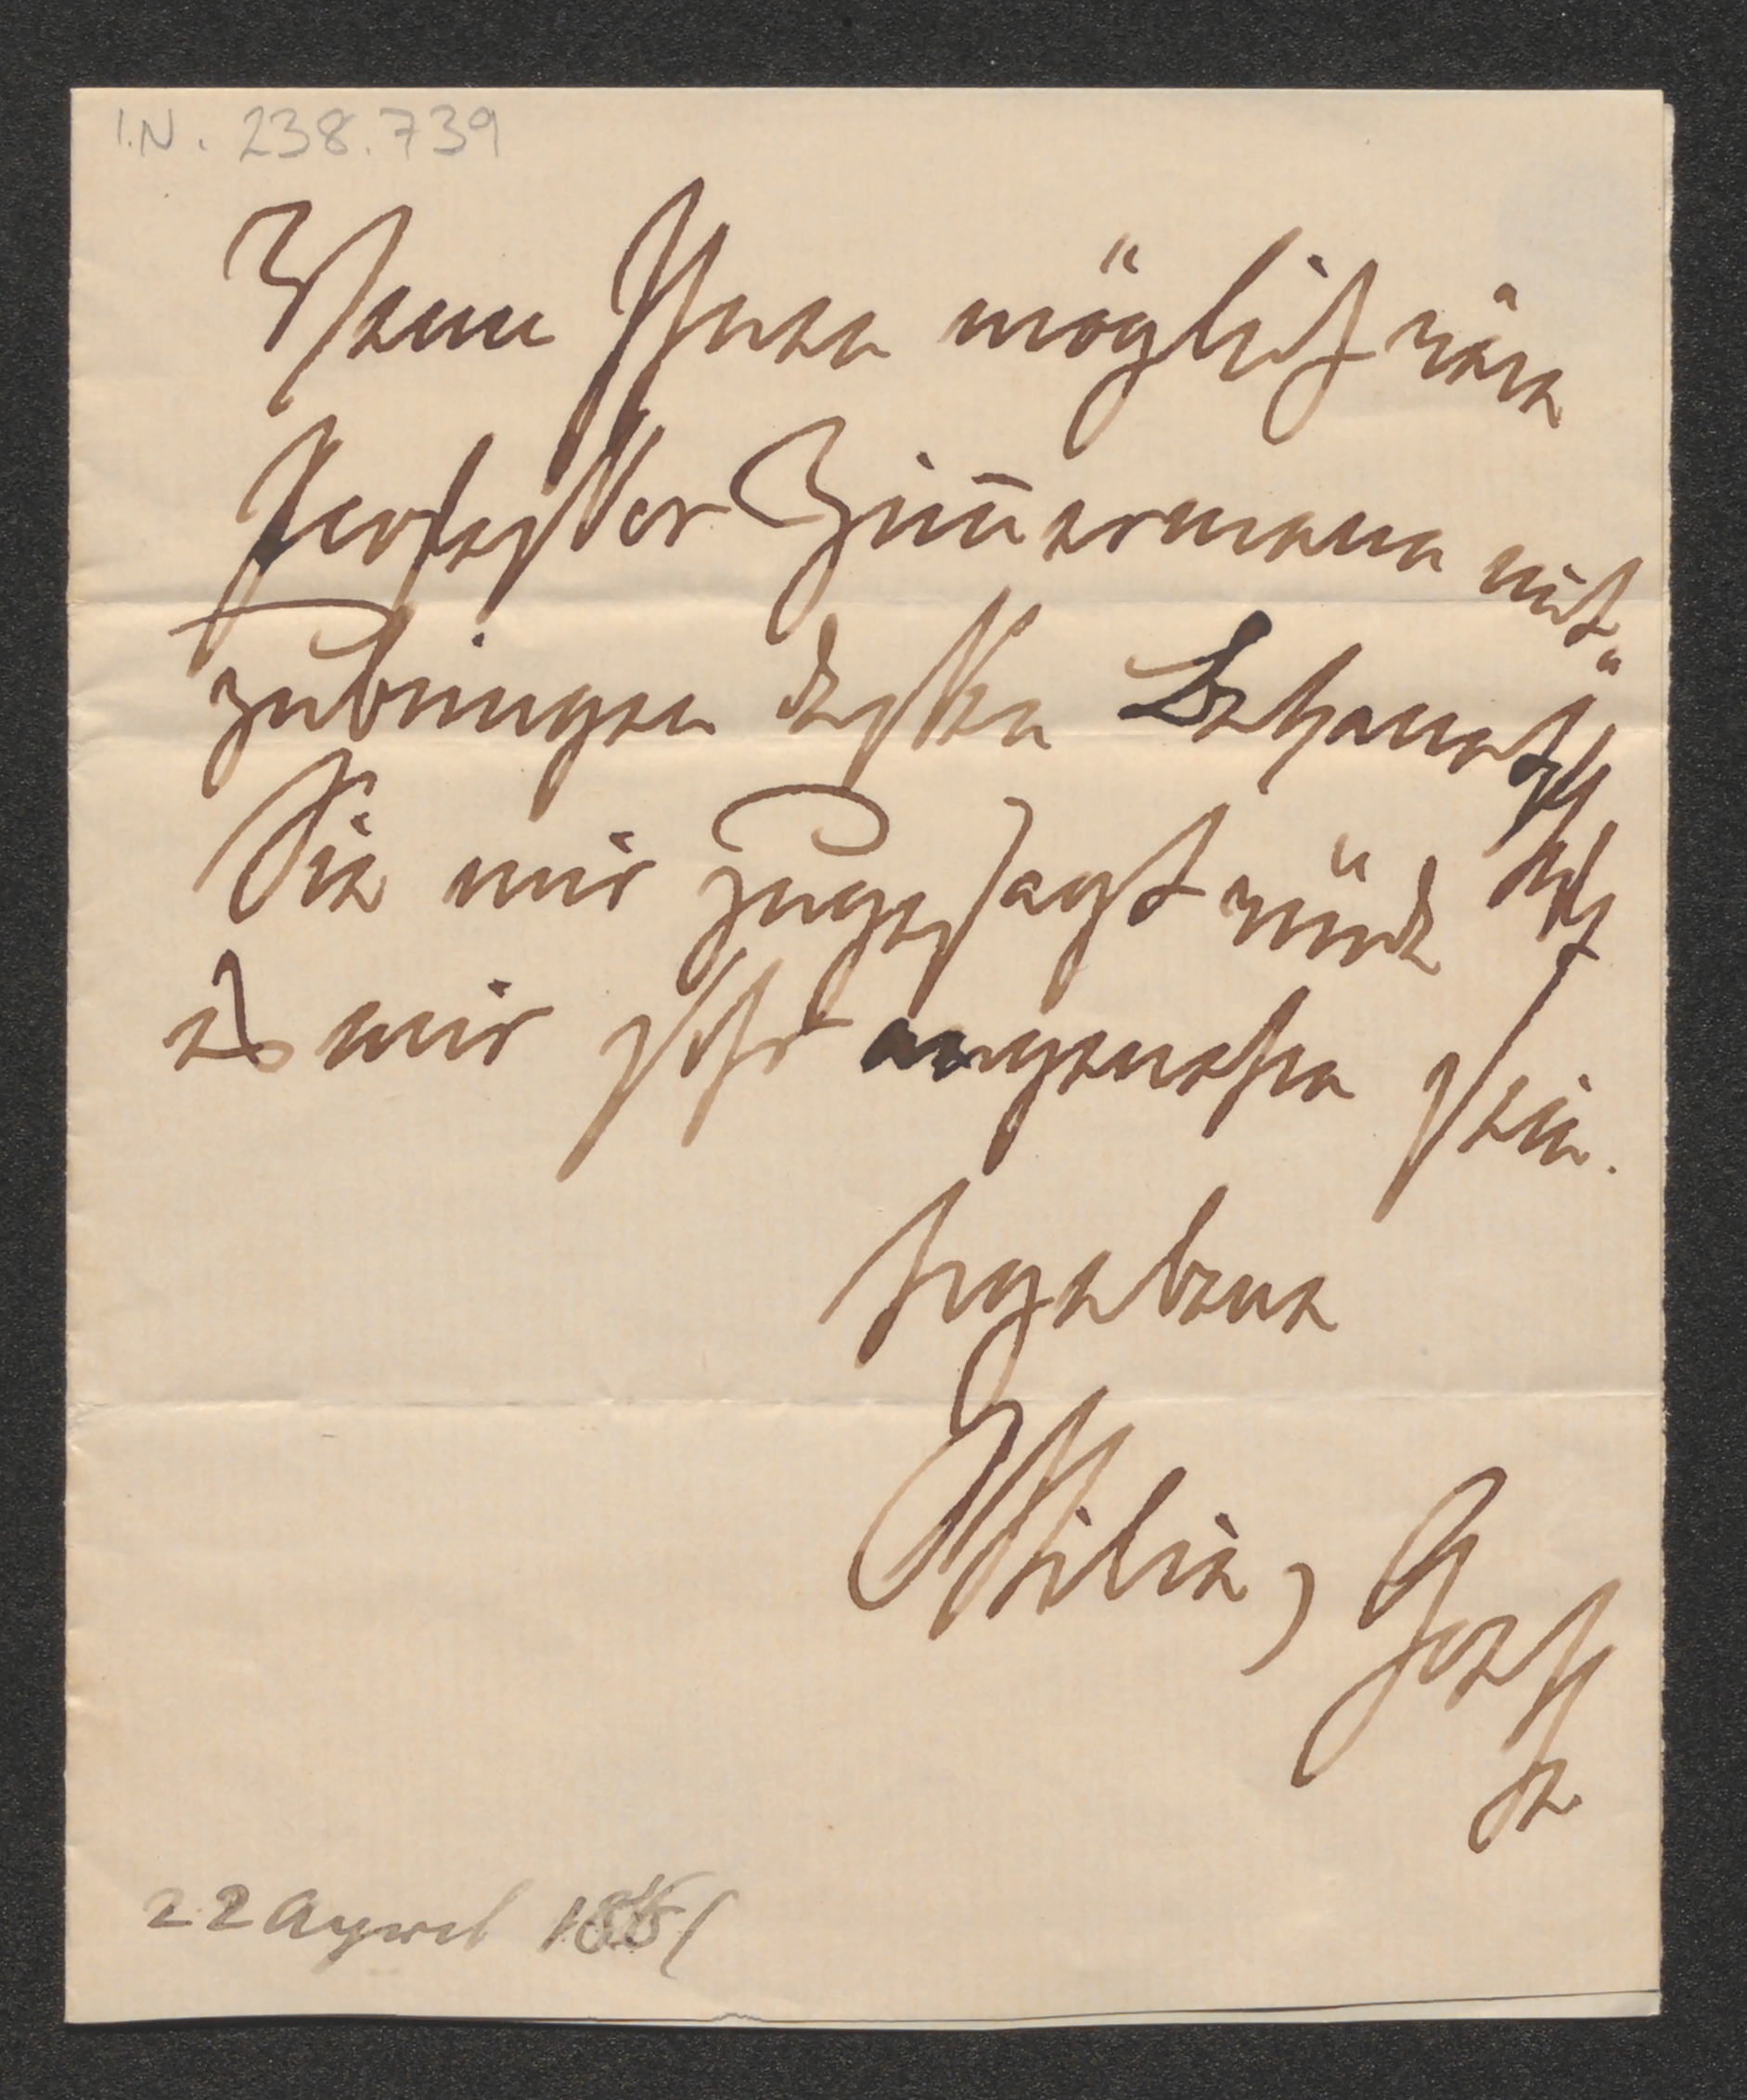 I.N. 238.739
Wenn Ihnen möglich wäre
Professor Zim̄ermann mit
zubringen dessen Bekanntsch
Sie mir zugesagt würde
es mir sehr angenehm sein.
Ergebene
Ottilie, Goethe
22 April 1861